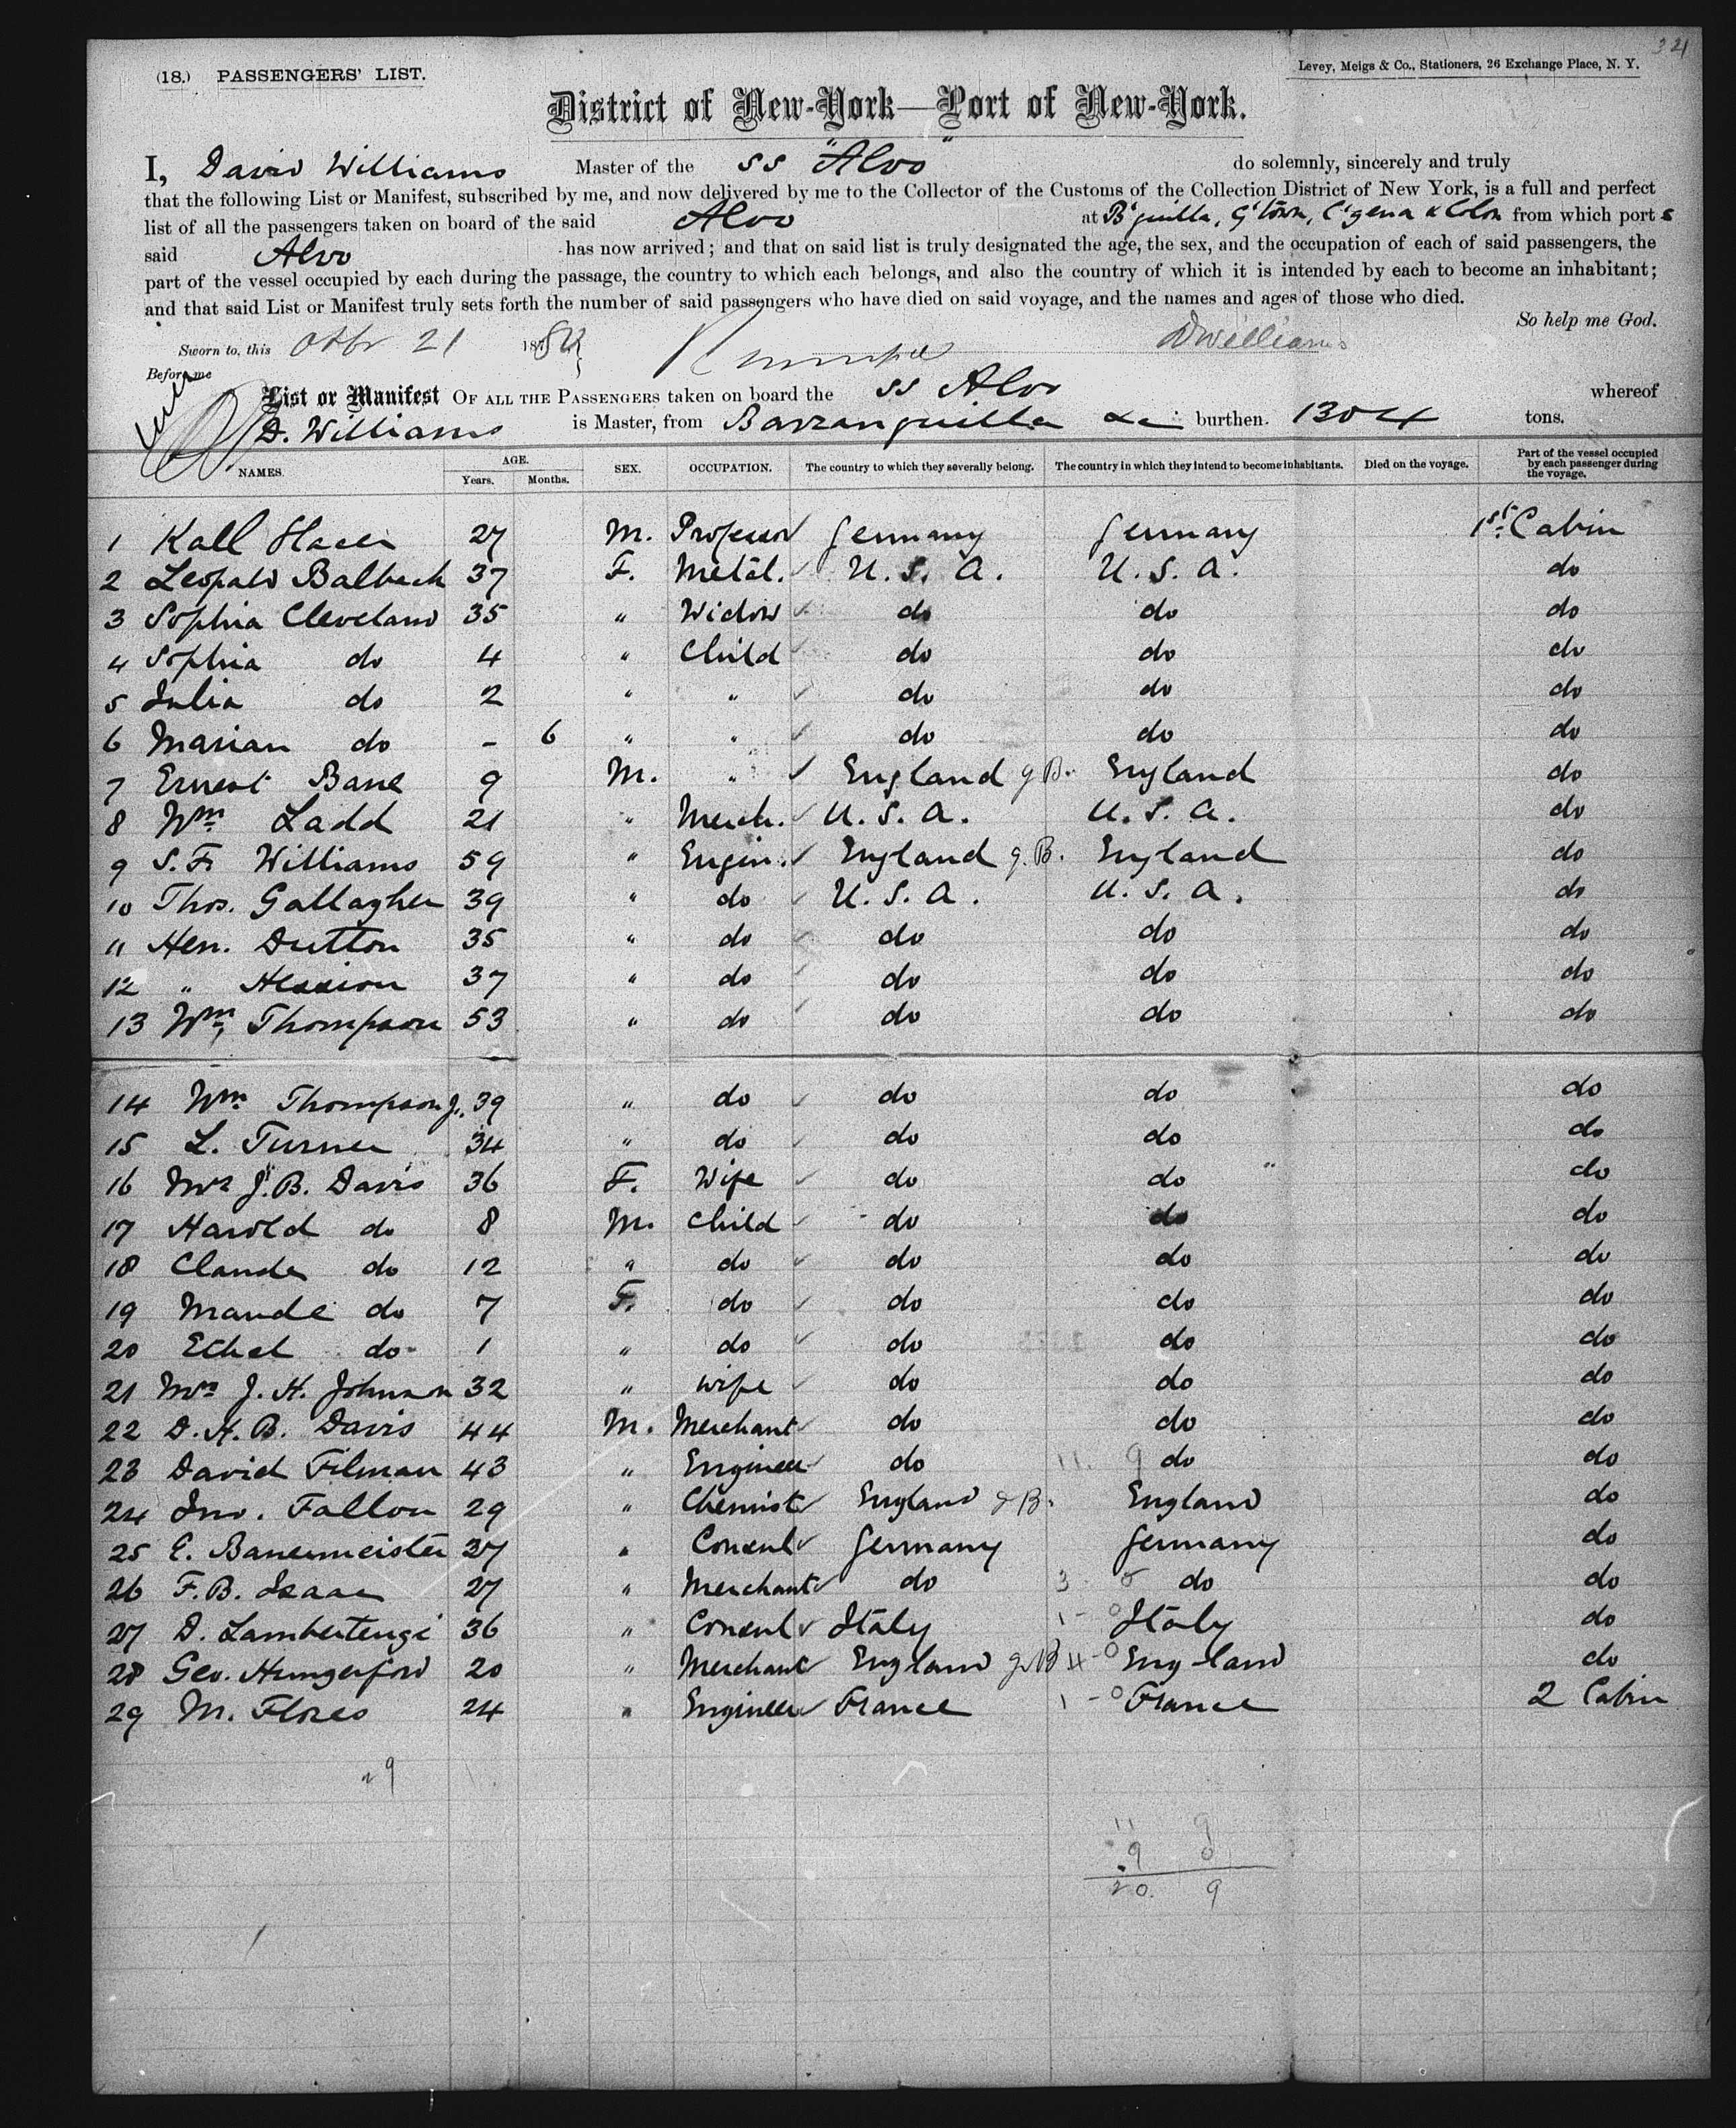 321
(18.) PASSENGERS' LIST.
Levey, Meigs & Co., Stationers, 26 Exchange Place, N. Y.
District of New-York—Port of New-York.
I, David Williams Master of the SS "Alvo" do solemnly, sincerely and truly
that the following List or Manifest, subscribed by me, and now delivered by me to the Collector of the Customs of the Collection District of New York, is a full and perfect
list of all the passengers taken on board of the said Alvo at B'quilla, G'town, C'gena & Colon from which port s
said Alvo has now arrived; and that on said list is truly designated the age, the sex, and the occupation of each of said passengers, the
part of the vessel occupied by each during the passage, the country to which each belongs, and also the country of which it is intended by each to become an inhabitant;
and that said List or Manifest truly sets forth the number of said passengers who have died on said voyage, and the names and ages of those who died.
So help me God.
Sworn to, this Octbr 21 187 DWilliams
Before me
List or Manifest OF ALL THE PASSENGERS taken on board the SS Alvo whereof
D. Williams is Master, from Barranquilla &c burthen. 1304 tons.
NAMES. AGE. Years. Months. SEX. OCCUPATION. The country to which they severally belong. The country in which they intend to become inhabitants. Died on the voyage. Part of the vessel occupied by each passenger during the voyage.
1 Kall 27 M. Professor Germany Germany 1st Cabin
2 Leopald Balbach 37 F. Metal. U. S. A. U. S. A. do
3 Sophia Cleveland 35 " Widow do do do
4 Sophia do 4 " Child do do do
5 Julia do 2 " " do do do
6 Marian do - 6 " " do do do
7 Ernest Bane 9 M. " England g B. England do
8 Wm Ladd 21 " Merch. U. S. A. U. S. A. do
9 S. F. Williams 59 " Engin. England g. B. England do
10 Thos. Gallagher 39 " do U. S. A. U. S. A. do
11 Hen. Dutton 35 " do do do do
12 " Hession 37 " do do do do
13 Wm. Thompson 53 " do do do do
14 Wm. Thompson J. 39 " do do do do
15 L. Turner 34 " do do do do
16 Mrs J. B. Davis 36 F. Wife do do do
17 Harold do 8 M. Child do do do
18 Claude do 12 " do do do do
19 Maude do 7 F. do do do do
20 Ethel do 1 " do do do do
21 Mrs J. H. Johnson 32 " wife do do do
22 D. H. B. Davis 44 M. Merchant do do do
23 David Filman 43 " Engineer do 11. 9 do do
24 Jno. Fallon 29 " Chemist England g B. England do
25 E. Bauermeister 27 " Consul Germany Germany do
26 F. B. Isaac 27 " Merchant do 3 0 do do
27 D. Lambertengi 36 " Consul Italy 1 - 0 Italy do
28 Geo. Hungerford 20 " Merchant England g B 4 - 0 England do
29 M. Flores 24 " Engineer France 1 - 0 France 2 Cabin
29
11 9
9 0
20. 9